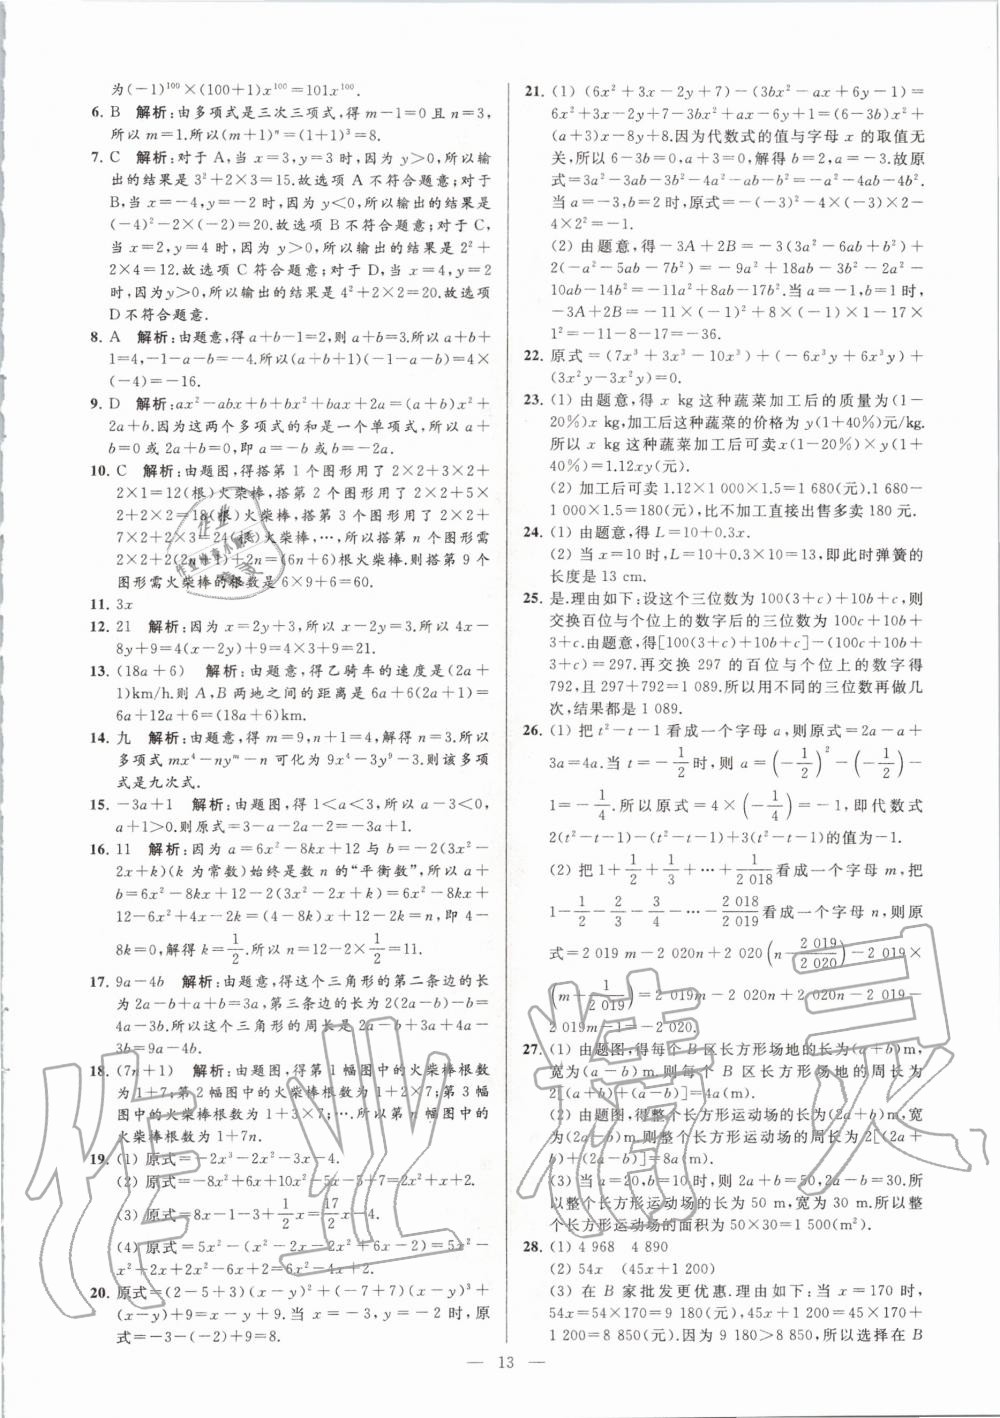 为(－1)¹⁰⁰×(100＋1)x¹⁰⁰＝101x¹⁰⁰.
6. B 解析:由多项式是三次三项式,得 m－1＝0 且 n＝3,
所以 m＝1.所以(m＋1)ⁿ＝(1＋1)³＝8.
7. C 解析:对于 A,当 x＝3,y＝3 时,因为 y＞0,所以输
出的结果是 3²＋2×3＝15.故选项 A 不符合题意;对于
B,当 x＝－4,y＝－2 时,因为 y＜0,所以输出的结果是
(－4)²－2×(－2)＝20.故选项 B 不符合题意;对于 C,
当 x＝2,y＝4 时,因为 y＞0,所以输出的结果是 2²＋
2×4＝12.故选项 C 符合题意;对于 D,当 x＝4,y＝2
时,因为 y＞0,所以输出的结果是 4²＋2×2＝20.故选项
D 不符合题意.
8. A 解析:由题意,得 a＋b－1＝2,则 a＋b＝3.所以 a＋b＋
1＝4,－1－a－b＝－4.所以(a＋b＋1)(－1－a－b)＝4×
(－4)＝－16.
9. D 解析:ax²－abx＋b＋bx²＋bax＋2a＝(a＋b)x²＋
2a＋b.因为这两个多项式的和是一个单项式,所以 a＋
b＝0 或 2a＋b＝0,即 a＝－b 或 b＝－2a.
10. C 解析:由题图,得搭第 1 个图形用了 2×2＋3×2＋
2×1＝12(根)火柴棒,搭第 2 个图形用了 2×2＋5×
2＋2×2＝18(根)火柴棒,搭第 3 个图形用了 2×2＋
7×2＋2×3＝24(根)火柴棒,…,所以搭第 n 个图形需
2×2＋2(2n＋1)＋2n＝(6n＋6)根火柴棒.所以搭第 9 个
图形需火柴棒的根数是 6×9＋6＝60.
11. 3x
12. 21 解析:因为 x＝2y＋3,所以 x－2y＝3.所以 4x－
8y＋9＝4(x－2y)＋9＝4×3＋9＝21.
13. (18a＋6) 解析:由题意,得乙骑车的速度是(2a＋
1)km/h.则 A,B 两地之间的距离是 6a＋6(2a＋1)＝
6a＋12a＋6＝(18a＋6)km.
14. 九 解析:由题意,得 m＝9,n＋1＝4,解得 n＝3.所以
多项式 mx⁴－nyᵐ－n 可化为 9x⁴－3y⁹－3.则该多项
式是九次式.
15. －3a＋1 解析:由题图,得 1＜a＜3,所以 a－3＜0,
a＋1＞0.则原式＝3－a－2a－2＝－3a＋1.
16. 11 解析:因为 a＝6x²－8kx＋12 与 b＝－2(3x²－
2x＋k)(k 为常数)始终是数 n 的“平衡数”,所以 a＋
b＝6x²－8kx＋12－2(3x²－2x＋k)＝6x²－8kx＋
12－6x²＋4x－2k＝(4－8k)x＋12－2k＝n,即 4－
8k＝0,解得 k＝1/2.所以 n＝12－2×1/2＝11.
17. 9a－4b 解析:由题意,得这个三角形的第二条边的长
为 2a－b＋a＋b＝3a,第三条边的长为 2(2a－b)－b＝
4a－3b.所以这个三角形的周长是 2a－b＋3a＋4a－
3b＝9a－4b.
18. (7n＋1) 解析:由题图,得第 1 幅图中的火柴棒根数
为 1＋7;第 2 幅图中的火柴棒根数为 1＋2×7;第 3 幅
图中的火柴棒根数为 1＋3×7;….所以第 n 幅图中的
火柴棒根数为 1＋7n.
19. (1) 原式＝－2x³－2x²－3x－4.
(2) 原式＝－8x²＋6x＋10x²－5x－5＋7＝2x²＋x＋2.
(3) 原式＝8x－1－3＋1/2x＝17/2x－4.
(4) 原式＝5x²－(x²－2x－2x²＋6x－2)＝5x²－
x²＋2x＋2x²－6x＋2＝6x²－4x＋2.
20. 原式＝(2－5＋3)(x－y)²＋(－7＋7)(x－y)³＋
(x－y)＋9＝x－y＋9.当 x＝－3,y＝－2 时,原
式＝－3－(－2)＋9＝8.
21. (1) (6x²＋3x－2y＋7)－(3bx²－ax＋6y－1)＝
6x²＋3x－2y＋7－3bx²＋ax－6y＋1＝(6－3b)x²＋
(a＋3)x－8y＋8.因为代数式的值与字母 x 的取值无
关,所以 6－3b＝0,a＋3＝0,解得 b＝2,a＝－3.故原
式＝3a²－3ab－3b²－4a²－ab－b²＝－a²－4ab－4b².
当 a＝－3,b＝2 时,原式＝－(－3)²－4×(－3)×2－
4×2²＝－1.
(2) 由题意,得－3A＋2B＝－3(3a²－6ab＋b²)＋
2(－a²－5ab－7b²)＝－9a²＋18ab－3b²－2a²－
10ab－14b²＝－11a²＋8ab－17b².当 a＝－1,b＝1 时,
－3A＋2B＝－11×(－1)²＋8×(－1)×1－17×
1²＝－11－8－17＝－36.
22. 原式＝(7x³＋3x³－10x³)＋(－6x³y＋6x³y)＋
(3x²y－3x²y)＝0.
23. (1) 由题意,得 x kg 这种蔬菜加工后的质量为(1－
20%)x kg,加工后这种蔬菜的价格为 y(1＋40%)元/kg.
所以 x kg 这种蔬菜加工后可卖 x(1－20%)×y(1＋
40%)＝1.12xy(元).
(2) 加工后可卖 1.12×1 000×1.5＝1 680(元).1 680－
1.5×1 000＝180(元),比不加工直接出售多卖 180 元.
24. (1) 由题意,得 L＝10＋0.3x.
(2) 当 x＝10 时,L＝10＋0.3×10＝13,即此时弹簧的
长度是 13 cm.
25. 是.理由如下:设这个三位数为 100(3＋c)＋10b＋c,则
交换百位与个位上的数字后的三位数为 100c＋10b＋
3＋c.由题意,得[100(3＋c)＋10b＋c]－(100c＋10b＋
3＋c)＝297.再交换 297 的百位与个位上的数字得
792,且 297＋792＝1 089.所以用不同的三位数再做几
次,结果都是 1 089.
26. (1) 把 t²－t－1 看成一个字母 a,则原式＝2a－a＋
3a＝4a.当 t＝－1/2时,则 a＝(－1/2)²－(－1/2)－
1＝－1/4.所以原式＝4×(－1/4)＝－1,即代数式
2(t²－t－1)－(t²－t－1)＋3(t²－t－1)的值为－1.
(2) 把 1＋1/2＋1/3＋…＋1/2 018看成一个字母 m,把
1－1/2－2/3－3/4－…－2 018/2 019看成一个字母 n,则原
式＝2 019m－2 020n＋2 020(n－2 019/2 020)－2 019×
(m＋1/2 019)＝2 019m－2 020n＋2 020n－2 019－
2 019m－1＝－2 020.
27. (1) 由题图,得每个 B 区长方形场地的长为(a＋b)m,
宽为(a－b)m.则每个 B 区长方形场地的周长为
2[(a＋b)＋(a－b)]＝4a(m).
(2) 由题图,得整个长方形运动场的长为(2a＋b)m,宽
为(2a－b)m.则整个长方形运动场的周长为 2[(2a＋
b)＋(2a－b)]＝8a(m).
(3) 当 a＝20,b＝10 时,则 2a＋b＝50,2a－b＝30.所
以整个长方形运动场的长为 50 m,宽为 30 m.所以整
个长方形运动场的面积为 50×30＝1 500(m²).
28. (1) 4 968 4 890
(2) 54x (45x＋1 200)
(3) 在 B 家批发更优惠.理由如下:当 x＝170 时,
54x＝54×170＝9 180(元),45x＋1 200＝45×170＋
1 200＝8 850(元).因为 9 180＞8 850,所以选择在 B
— 13 —
作业精灵